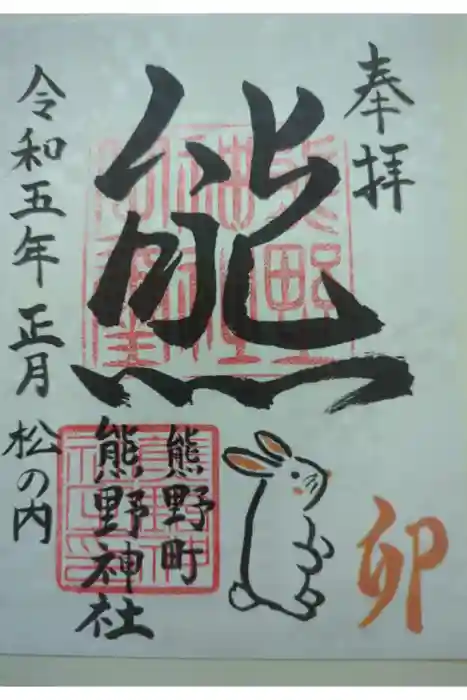 奉拝
熊
卯
熊野町
熊野神社
令和五年正月松の内